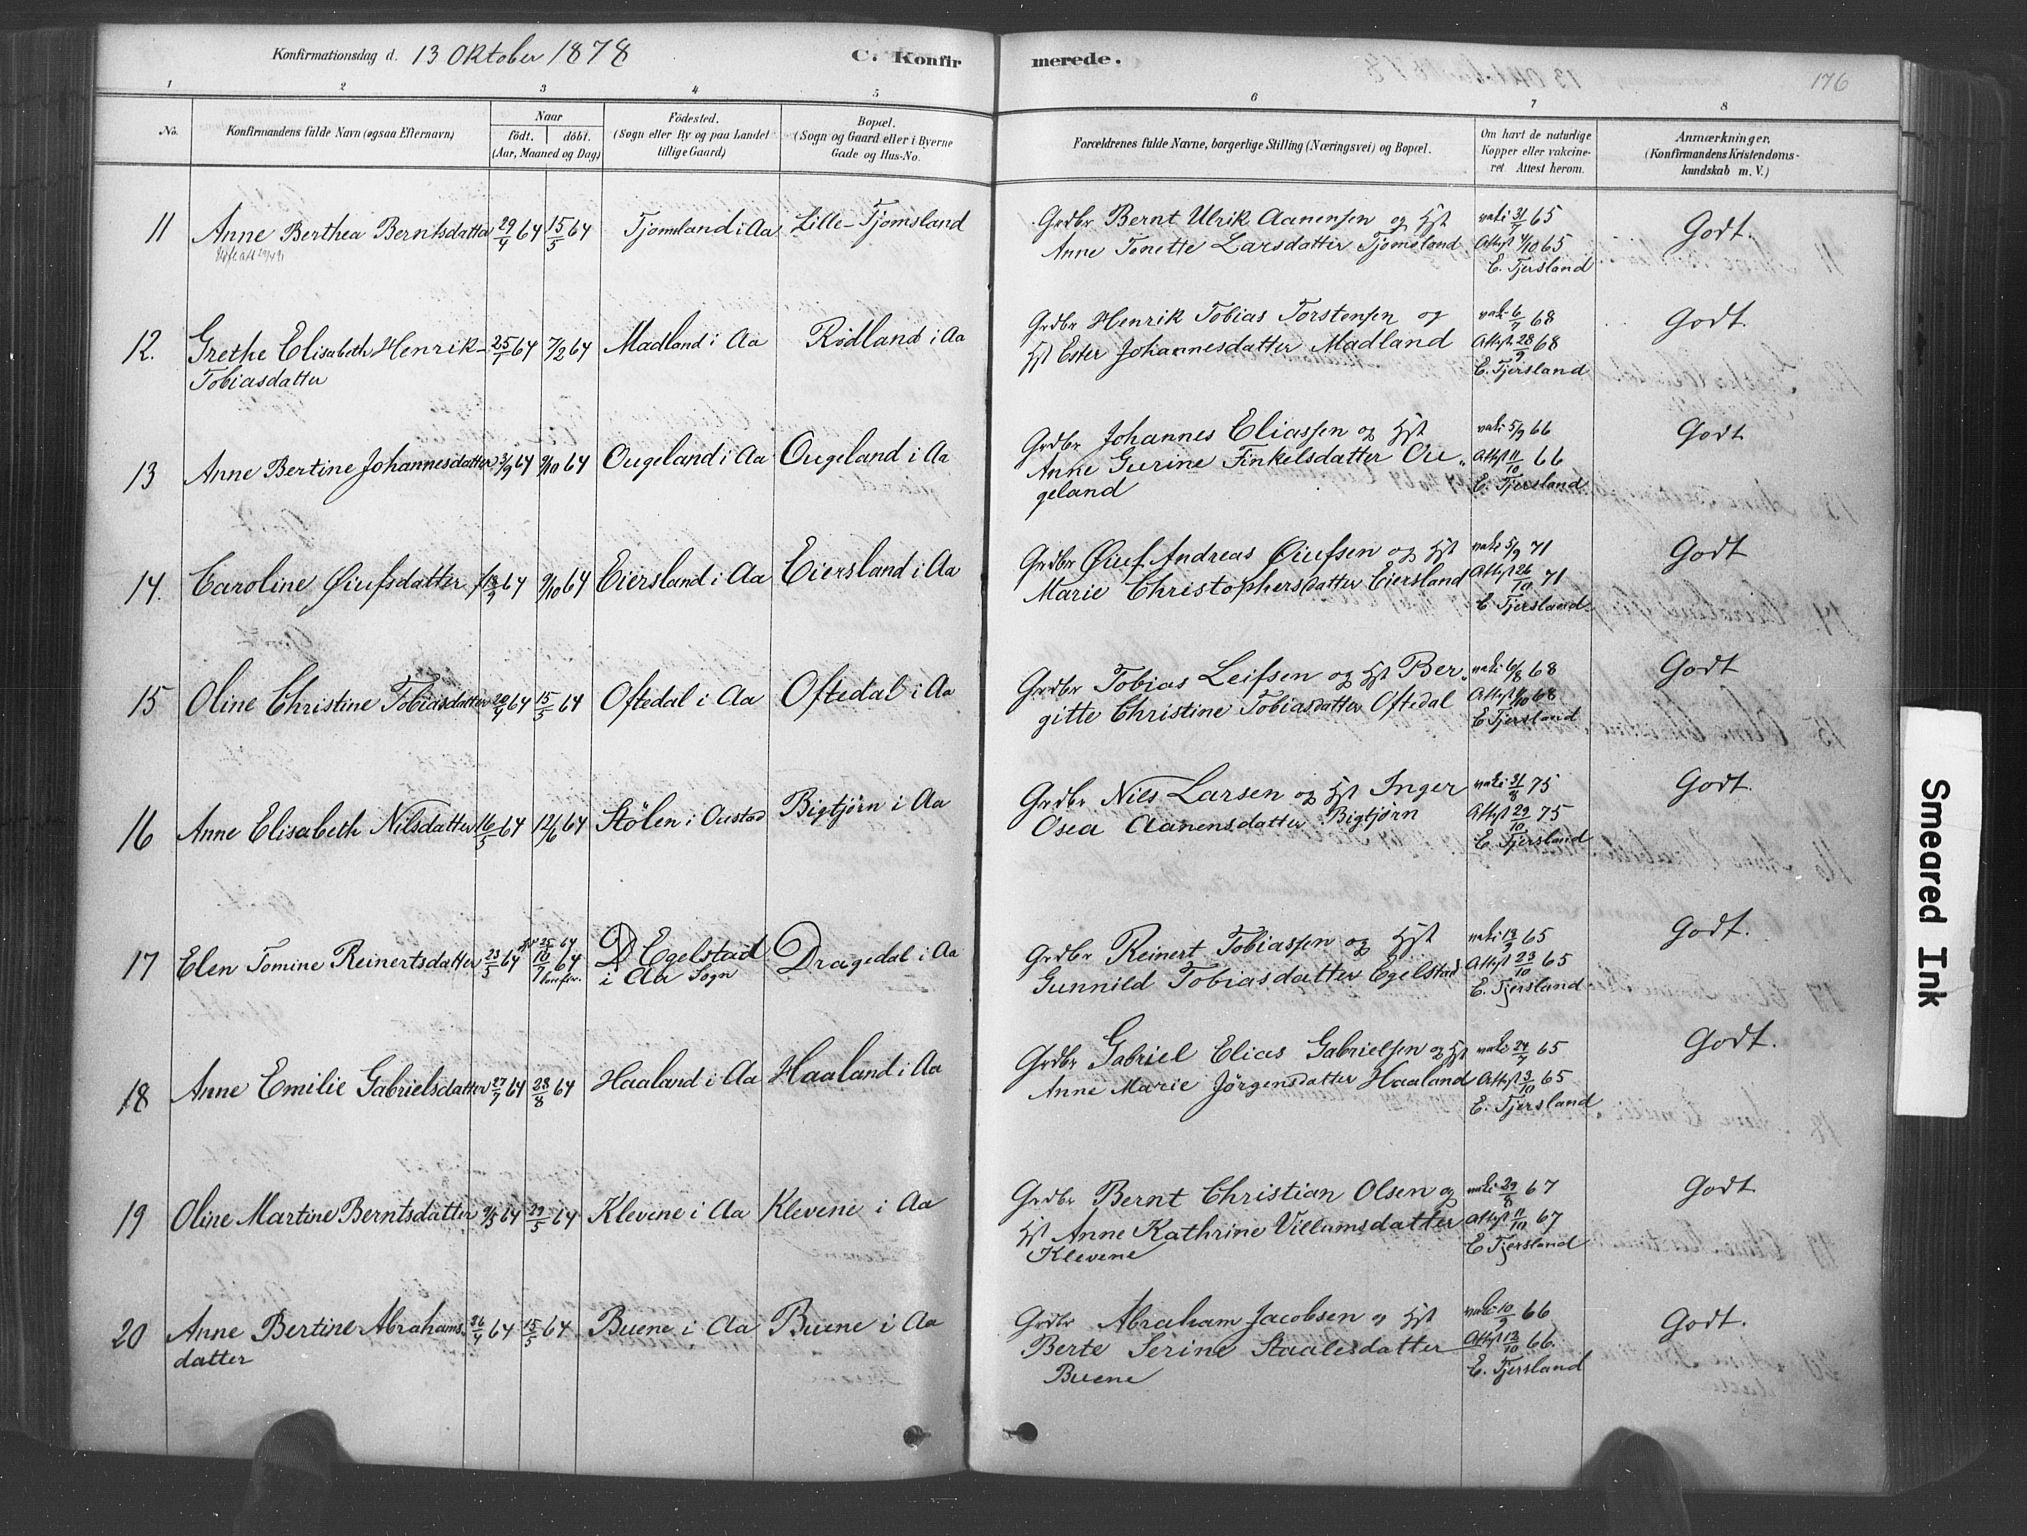 Konfirmationsdag d. 13 Oktober 1878 C. Konfirmerede. 176
1 2 3 4 5 6 7 8
No. Konfirmandens fulde Navn (ogsaa Efternavn) Naar født. døbt. (Aar, Maaned og Dag) Fødested. (Sogn eller By og paa Landet tillige Gaard) Bopæl. (Sogn og Gaard eller i Byerne Gade og Hus-No. Forældrenes fulde Navne, borgerlige Stilling (Næringsvei) og Bopæl. Om havt de naturlige Kopper eller vakcineret Attest herom. Anmærkninger. (Konfirmandens Kristendomskundskab m. V.)
11 Anne Berthea Berntsdatter 29/4 64 15/5 64 Tjomsland i Aa Lille-Tjomsland Grdbr Bernt Ulrik Aanensen og Hst vak: 31/7 65 Godt.
Anne Tonette Larsdatter Tjomsland Attest 4/10 65
E. Tjersland
12. Grethe Elisabeth Henrik- 25/1 64 7/2 64 Madland i Aa Rødland i Aa Grdbr Henrik Tobias Torstensen og vak: 6/7 68 Godt.
Tobiasdatter Hst Ester Johannesdatter Madland Attest 28/9 68
E. Tjersland
13 Anne Bertine Johannesdatter 3/9 64 9/10 64 Ougeland i Aa Ougeland i Aa Grdbr Johannes Eliassen og Hst vak: 5/9 66 Godt
Anne Gurine Finkelsdatter Ou„ Attest 11/10 66
geland E. Tjersland
14. Caroline Øiufsdatter 13/9 64 9/10 64 Eiersland i Aa Eiersland i Aa Grdbr Øiuf Andreas Øiufsen og Hst vak: 5/9 71 Godt
Marie Christophersdatter Eiersland Attest 26/10 71
E Tjersland
15 Oline Christine Tobiasdatter 20/4 64 15/5 64 Oftedal i Aa Oftedal i Aa Grdbr Tobias Leifsen og Hst Ber„ vak: 6/8 68 Godt
gitte Christine Tobiasdatter Oftedal Attest 11/10 68
E Tjersland
16 Anne Elisabeth Nilsdatter 16/5 64 12/6 64 Stölen i Oustad Bigtjørn i Aa Grdbr Nils Larsen og Hst Inger vak: 31/8 75 Godt.
Osea Aanensdatter Bigtjørn Attest 29/10 75
E. Tjersland
17 Elen Tomine Reinertsdatter 23/5 64 25/10 64 Egelstad i Aa Sogn Dragedal i Aa Grdbr Reinert Tobiassen og Hst vak: 13/9 65 Godt.
Gunnild Tobiasdatter Egelstad Attest 23/10 65
E. Tjersland
18 Anne Emilie Gabrielsdatter 27/7 64 28/8 64 Haaland i Aa Haaland i Aa Grdbr Gabriel Elias Gabrielsen og Hst vak: 24/7 65 Godt.
Anne Marie Jørgensdatter Haaland Attest 3/10 65
E. Tjersland
19 Oline Martine Berntsdatter 9/5 64 29/5 64 Klevene i Aa Klevene i Aa Grdbr Bernt Christian Olsen og vak: 29/8 67 Godt
Hst Anne Kathrine Villumsdatter Attest 11/10 67
Klevene E Tjersland
20 Anne Bertine Abrahams- 26/4 64 15/5 64 Buene i Aa Buene i Aa Grdbr Abraham Jacobsen og Hst vak: 10/9 66 Godt.
datter Berte Serine Staalesdatter Attest 13/10 66.
Buene E. Tjersland
Smeared Ink